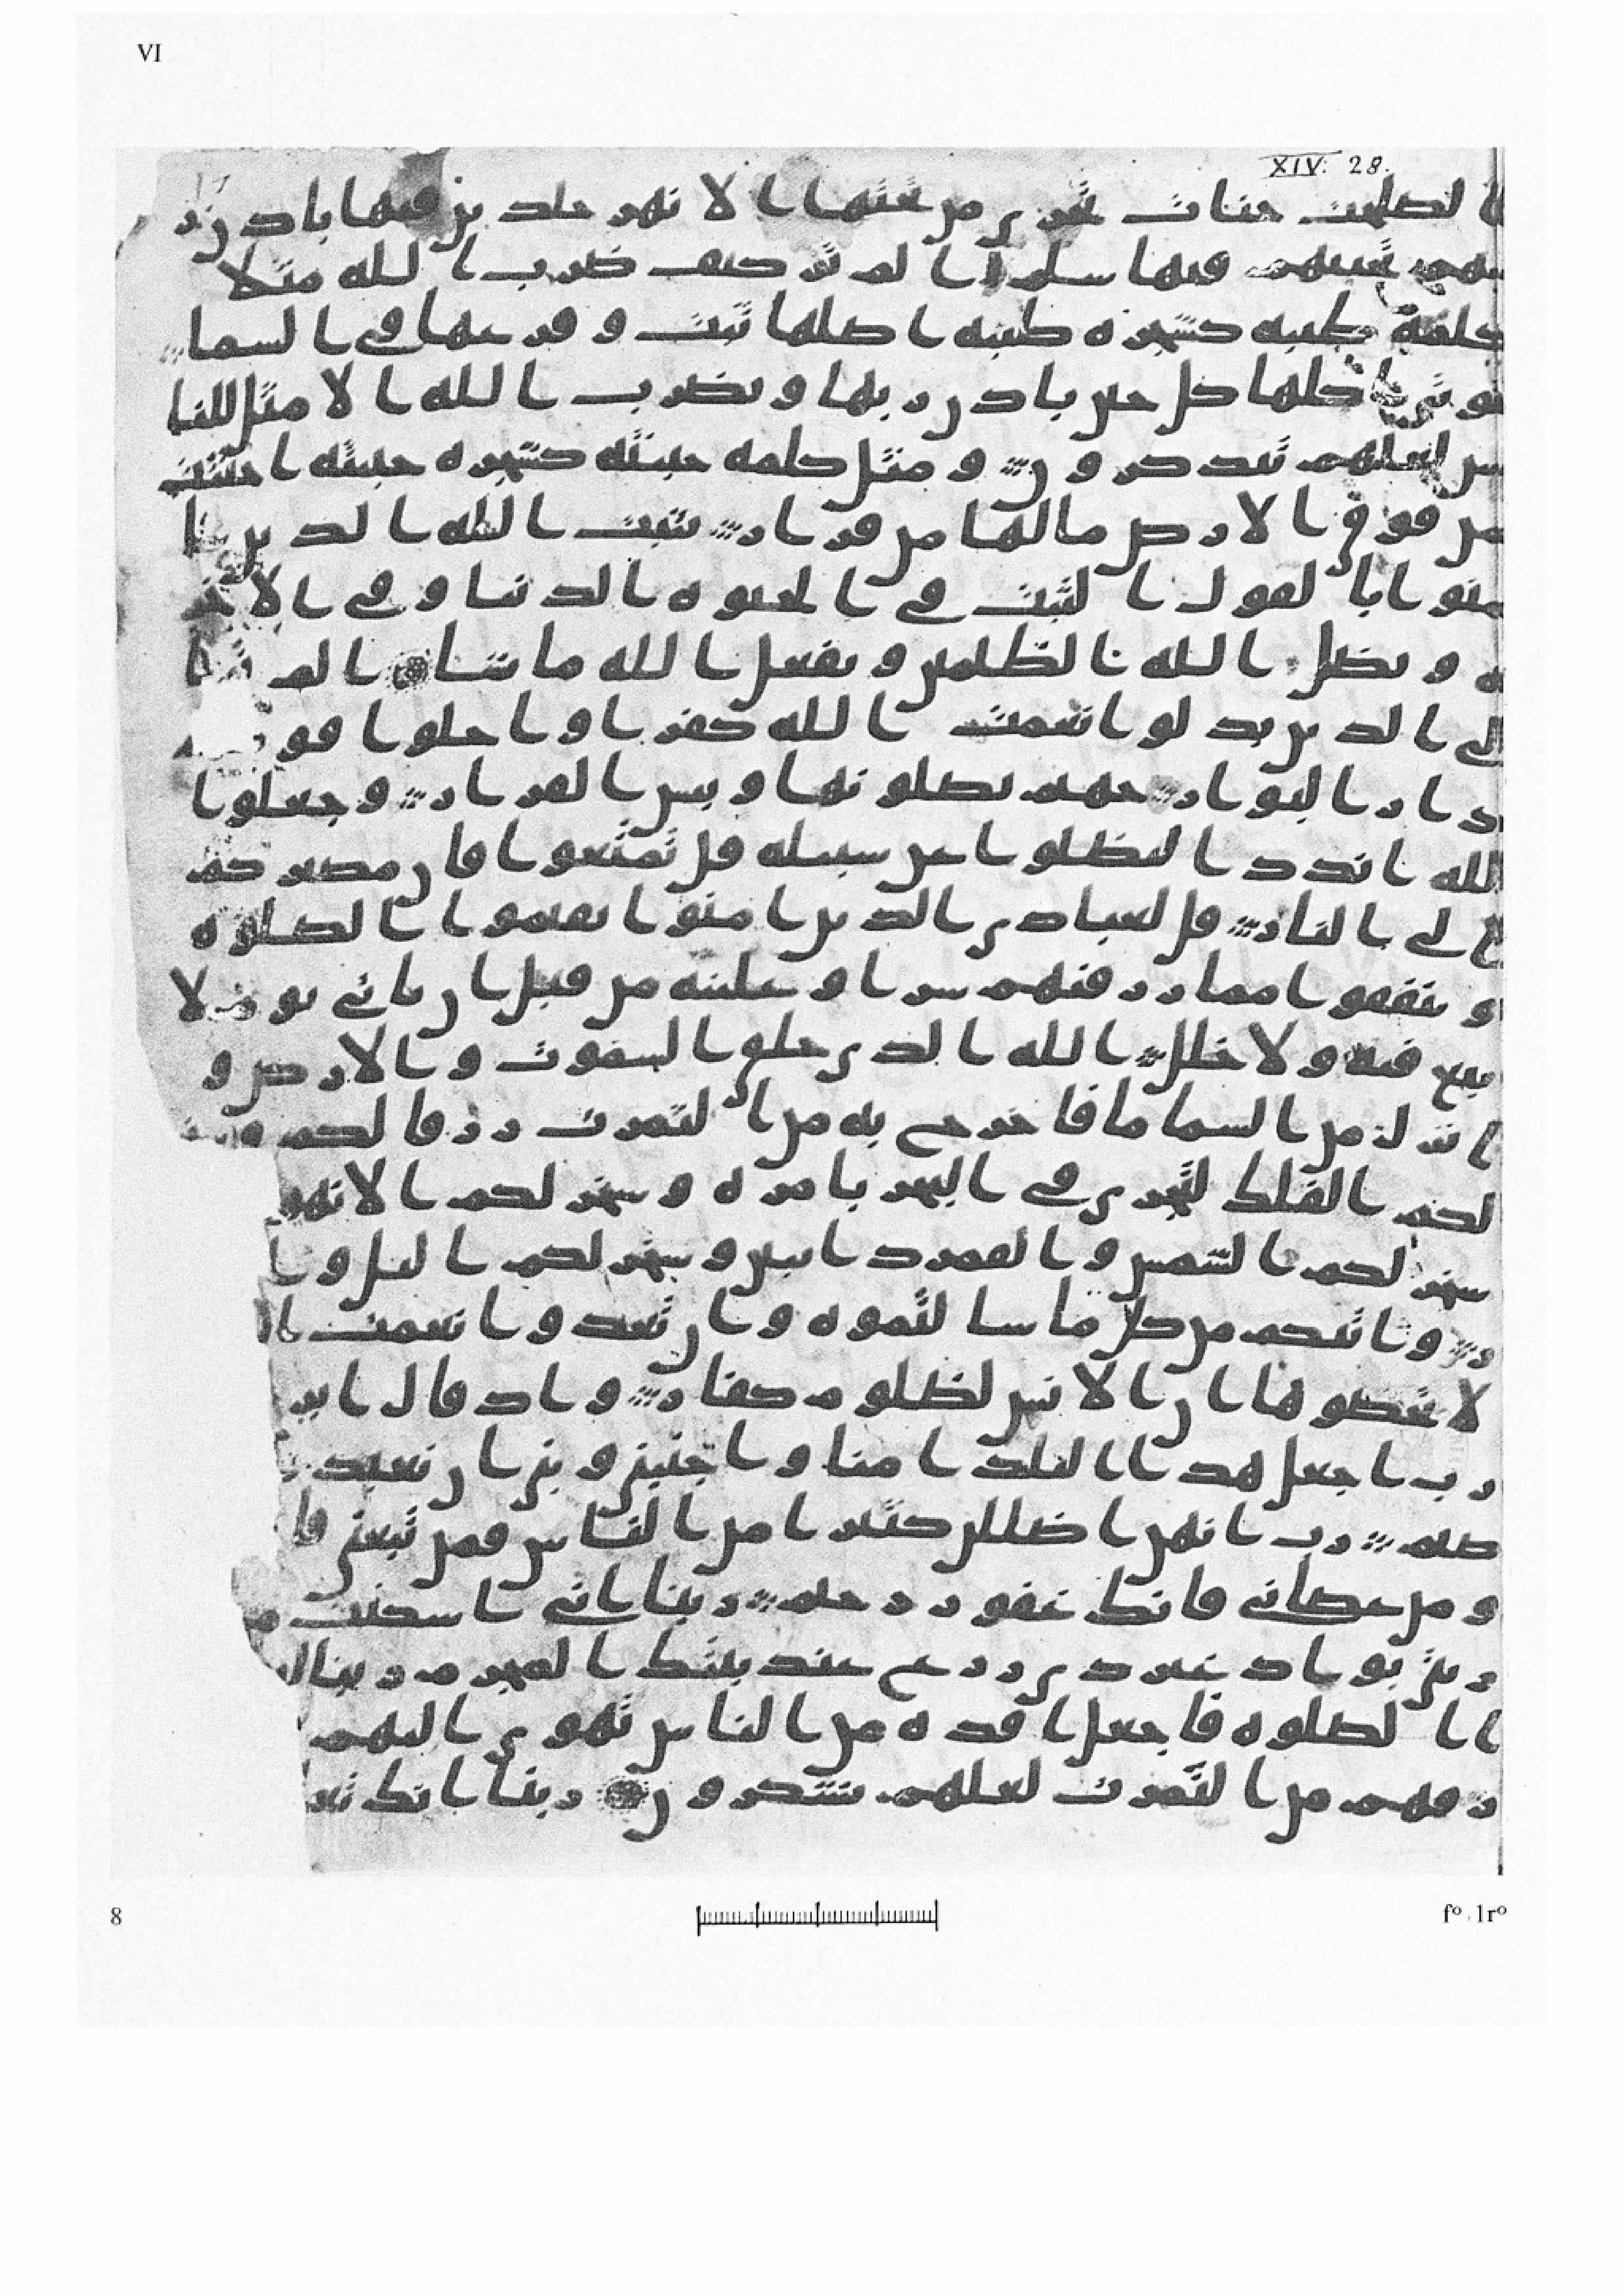 VI
XIV: 28.
ا لصلحت جنات تجرى من تحتها ا لا نهر خلد ين فيها باذ ن ر
بهم تحيتهم فيها سلم ا لم تر كيف ضرب ا لله مثلا
كلمة طيبه كشجره طيبه ا صلها ثبت و فر عها في ا لسما
تو تى ا كلها كل حين باذ ن ر بها و يضرب ا لله ا لا مثل للنا
س لعلهم يتذ كر و ن و مثل كلمه خبيثه كشجره خبيثه ا جتثت
من فو ق ا لا ر ض ما لها من قر ا ر يثبت ا لله ا لذ ين ا
منو ا با لقو ل ا لثبت في ا لحيو ه ا لد نيا و في ا لا خر
ه و يضل ا لله ا لظلمين و يفعل ا لله ما يشا ا لم تر ا
لى ا لذ ين بد لو ا نعمت ا لله كفر ا و ا حلو ا قو
د ا ر ا لبو ا ر جهنم يصلو نها و بئس ا لقر ا ر و جعلو ا
لله ا ند د ا ليضلو ا عن سبيله قل تمتعو ا فا ن مصير كم
ا لى ا لنا ر قل لعبا د ى ا لذ ين ا منو ا يقيمو ا ا لصلو ه
و ينفقو ا مما ر ز قنهم سر ا و علنيه من قبل ا ن يا تى يو م لا
بيع فيه و لا خلل ا لله ا لذ ى خلق ا لسموت و ا لا ر ض و
ا نز ل من ا لسما ما فا خر ج به من ا لثمر ت ر ز قا لكم و
لكم ا لفلك لتجر ى في ا لبحر با مر ه و سخر لكم ا لا نهر
سخر لكم ا لشمس و ا لقمر د ا ئبين و سخر لكم ا ليل و ا
ر و ا تىكم من كل ما سا لتمو ه و ا ن تعد و ا نعمت ا
لا تحصو ها ا ن ا لا نسن لظلو م كفا ر و ا ذ قا ل ا بر
ر ب ا جعل هذ ا ا لبلد ا منا و ا جنبني و بني ا ن نعبد
صنم ر ب ا نهن ا ضللن كثير ا من ا لنا س فمن تبعني فا
و من عصا ني فا نك غفو ر ر حيم ر بنا ا ني ا سكنت
ر يتي بو ا د غير ذ ى ز ر ع عند بيتك ا لمحر م ر بنا
ا ا لصلو ه فا جعل ا فد ه من ا لنا س تهو ى ا ليهم
ر قهم من ا لثمر ت لعلهم يشكر و ن ر بنا ا نك تعلم
8
f° 1r°